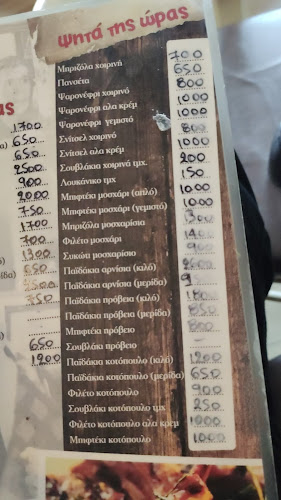 ψητά της ώρας
Μπριζόλα χοιρινή 700
Πανσέτα 650
Ψαρονέφρι χοιρινό 800
Ψαρονέφρι αλα κρέμ 1000
Ψαρονέφρι γεμιστό 1000
Σνίτσελ χοιρινό 800
Σνίτσελ αλα κρέμ 1000
Σουβλάκια χοιρινό τμχ. 200
Λουκάνικο τμχ 150
Μπιφτέκι μοσχάρι (απλό) 1000
Μπιφτέκι μοσχάρι (γεμιστό) 1000
Μπριζόλα μοσχαρίσια
Φιλέτο μοσχάρι 1400
Συκώτι μοσχαρίσιο 900
Παϊδάκια αρνίσια (κιλό)
Παϊδάκια αρνίσια (μερίδα)
Παϊδάκια πρόβεια (κιλό)
Παϊδάκια πρόβεια (μερίδα) 850
Μπιφτέκι πρόβειο 800
Σουβλάκι πρόβειο
Παϊδάκια κοτόπουλο (κιλό) 1200
Παϊδάκια κοτόπουλο (μερίδα) 650
Φιλέτο κοτόπουλο 900
Σουβλάκι κοτόπουλο τμχ 250
Φιλέτο κοτόπουλο αλα κρέμ 1000
Μπιφτέκι κοτόπουλο 1000
1700
650
650
2500
900
2000
750
1700
700
1300
650
2500
750
650
1200